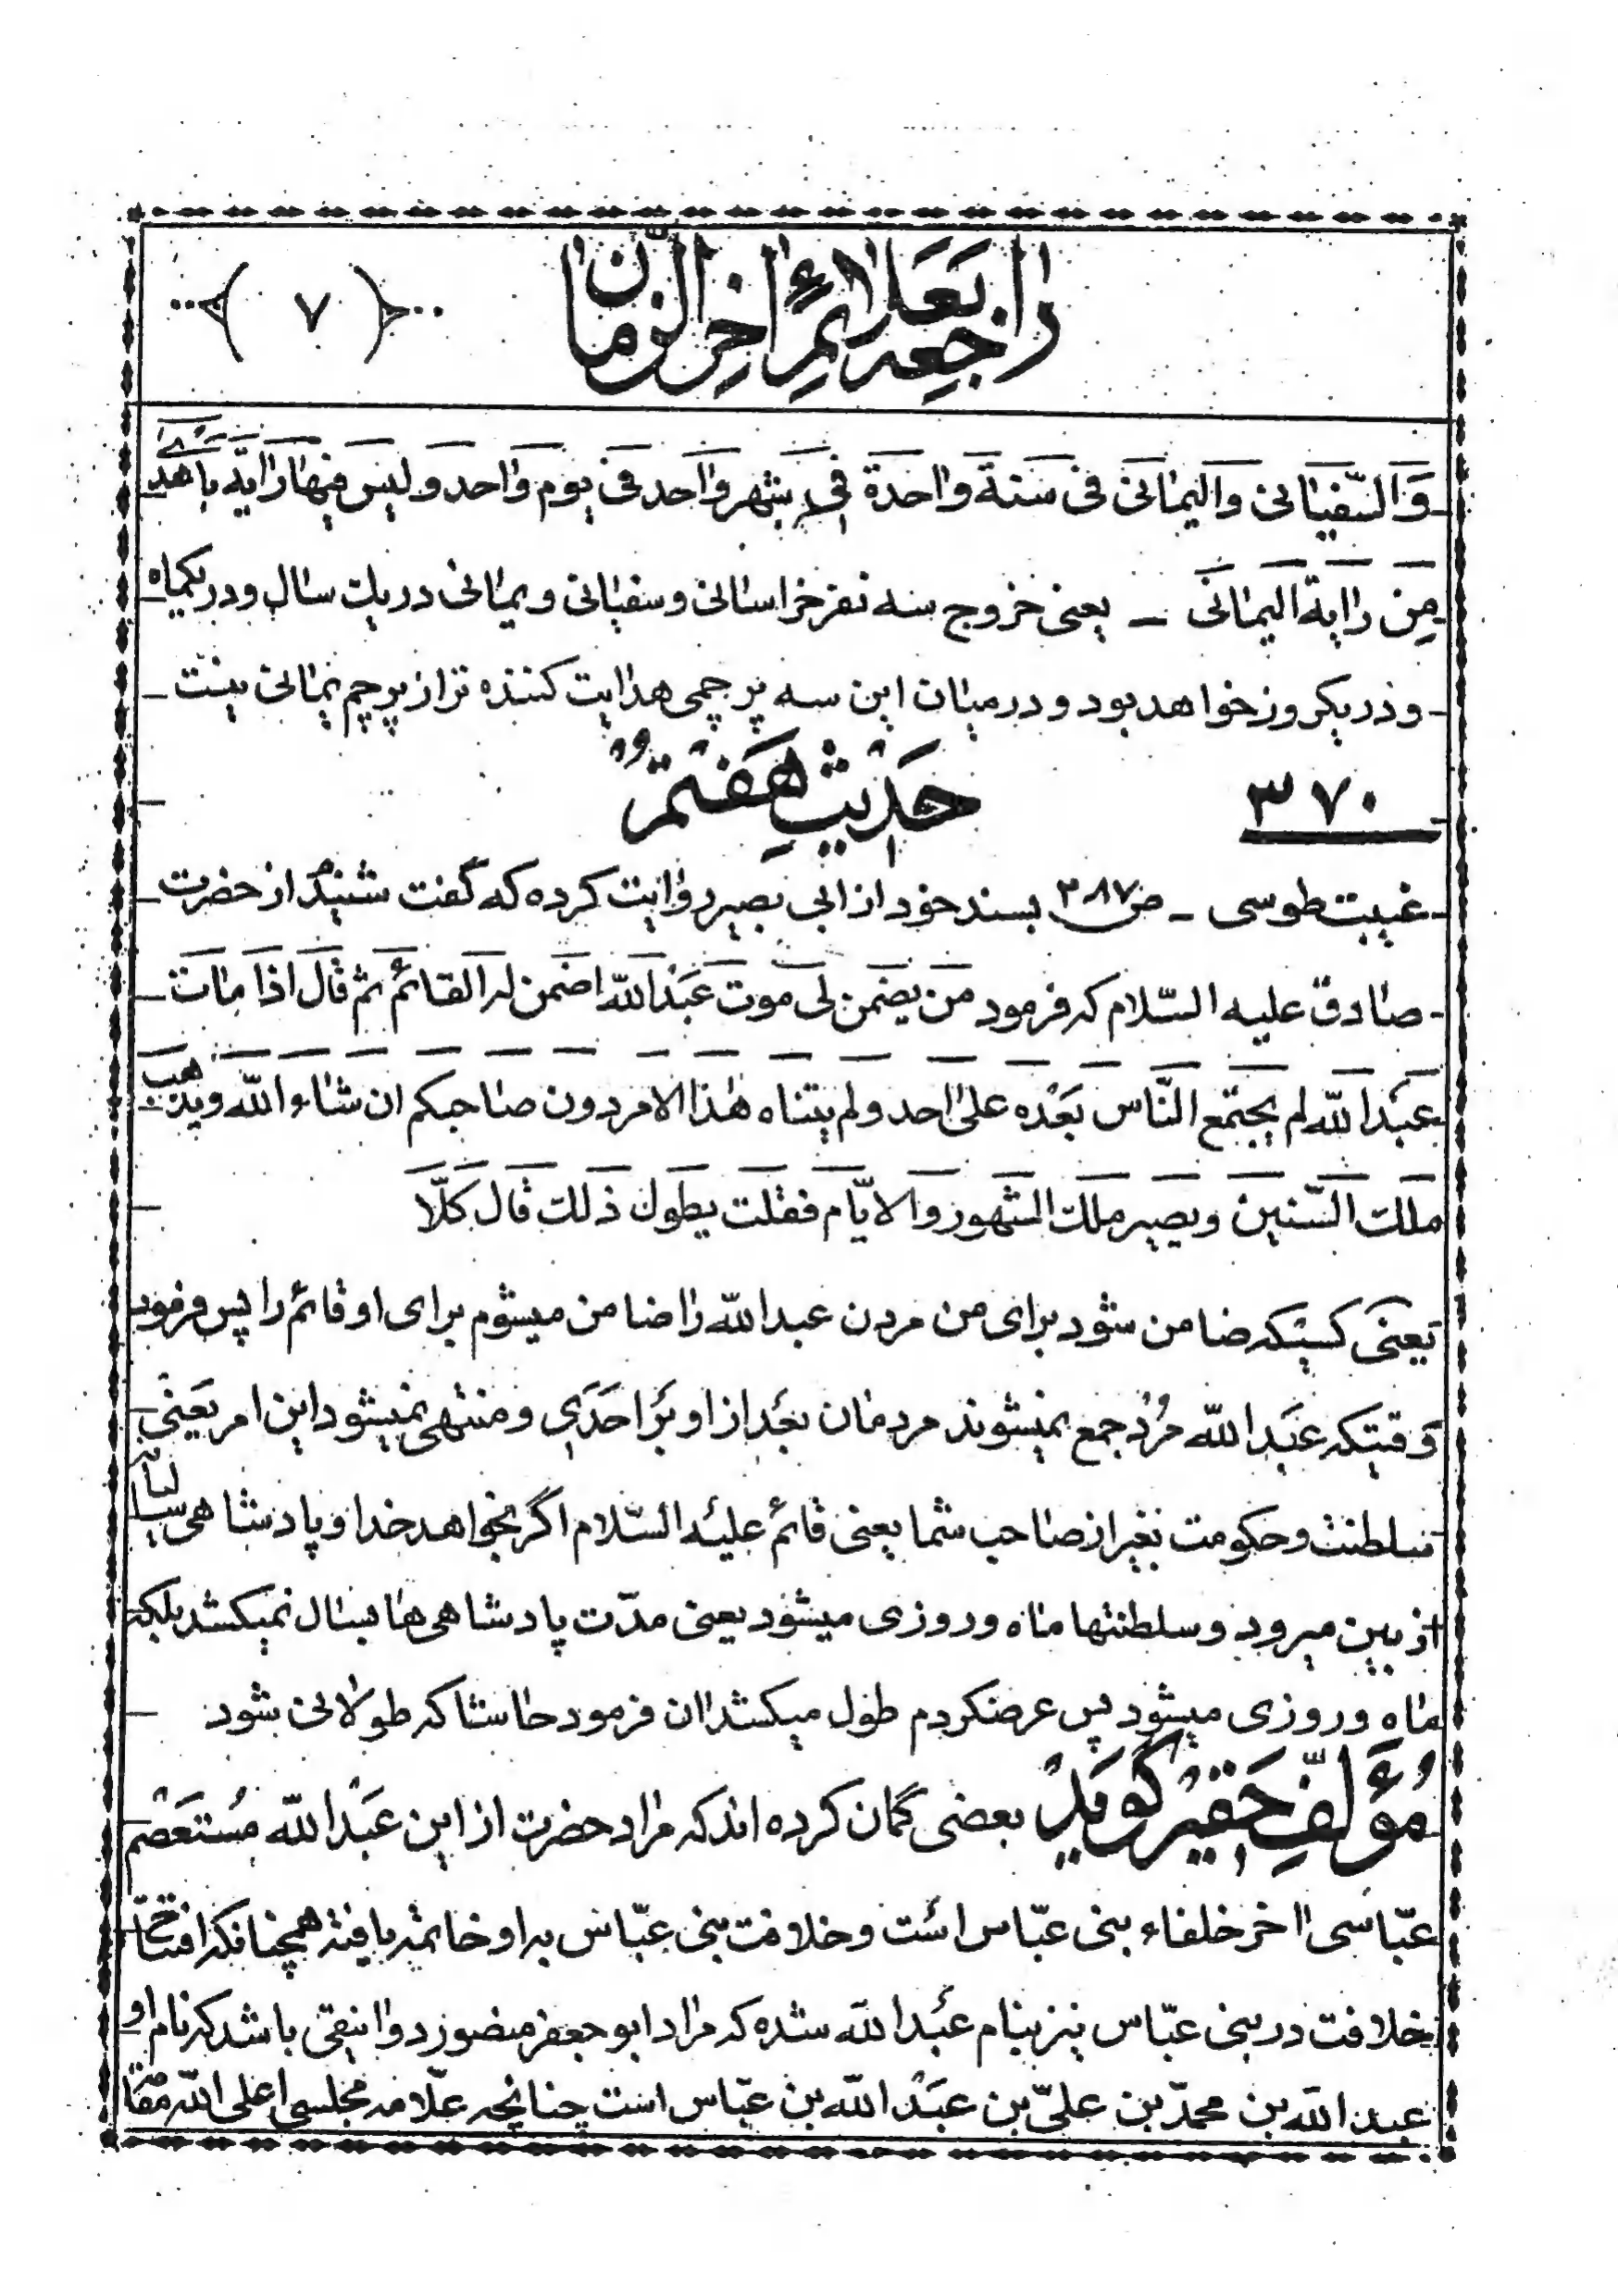 راجعه بعلائم اخر الزّمان
( ۷ )
وَالسّفیانی وَالیمانی فی سَنة واحدة فی شهر واحد فی یوم واحد و لیس فیها رایة باهدی
مِن رایة الیمانی ـ یعنی خروج سه نفر خراسانی و سفیانی و یمانی در یک سال و در یکماه
و در یکروز خواهد بود و در میان این سه پرچمی هدایت کننده تر از پرچم یمانی نیست
۳۷۰ حَدیثِ هَفتمُ
غیبت طوسی ـ ص۳۸۷ بسند خود از ابی بصیر روایت کرده که گفت شنیدم از حضرت
صادق علیه السّلام که فرمود من یضمن لی موت عَبْدالله اضمن له القائم ثم قال اذا مات
عَبْدالله لم یجتمع النّاس بَعْده علی احد و لم یتناه هٰذا الامر دون صاحبکم ان شاء الله و یذهب
ملک السّنین و یصیر ملک الشهور و الایّام فقلت یطول ذلک قال کَلّا
یَعنی کسیکه ضامن شود برای من مردن عبدالله را ضامن میشوم برای او قائم را پس فرمود
وقتیکه عَبدالله مُرد جمع نمیشوند مردمان بعد از او بَر احَدی و منتهی نمیشود این امر یَعنی
سلطنت و حکومت بغیر از صاحب شما یعنی قائم علیه السّلام اگر بخواهد خدا و پادشاهی سالیانه
از بین میرود و سلطنتها ماه و روزی میشود یعنی مدّت پادشاهی‌ها بسال نمیکشد بلکه
ماه و روزی میشود پس عرضکردم طول میکشد اان فرمود حاشا که طولانی شود
مُؤلّفِ حَقیرْ گوید بعضی گمان کرده اند که مراد حضرت از این عَبْدالله مُستَعصَم
عبّاسی اخر خلفاء بنی عبّاس است و خلافت بنی عبّاس به او خاتمه یافته همچنانکه افتتاح
خلافت در بنی عبّاس نیز بنام عَبدالله شده که مراد ابو جعفر منصور دوانیقی باشد که نام او
عبدالله بن محمّد بن علیّ بن عَبْدالله بن عبّاس است چنانچه علّامه مجلسی اعلی الله مقا